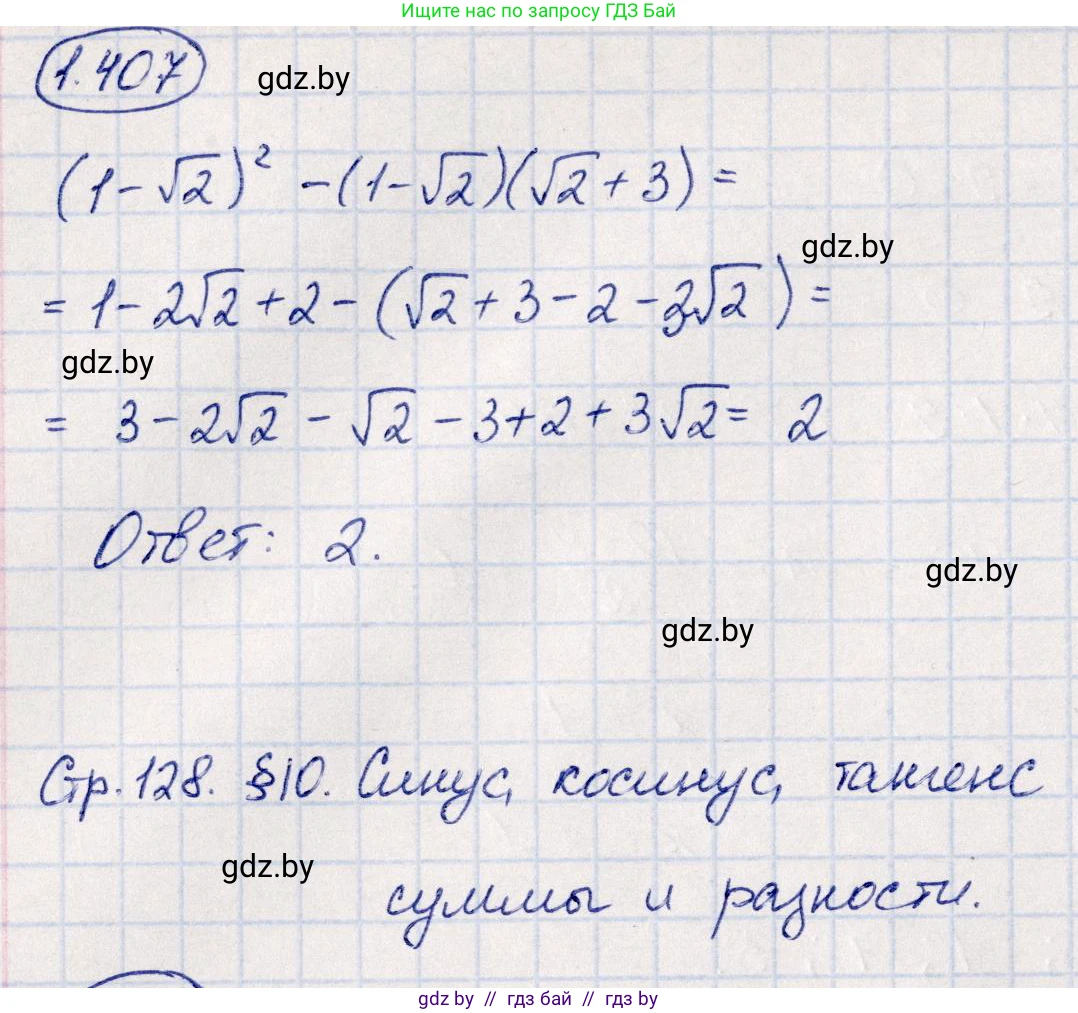 Ищите нас по запросу ГДЗ Бай
1.407
gdz.by
(1-√2)² -(1-√2)(√2+3)=
gdz.by
= 1-2√2+2-(√2+3-2-3√2)=
gdz.by
= 3-2√2-√2-3+2+3√2= 2
Ответ: 2.
gdz.by
gdz.by
Стр.128. §10. Синус, косинус, тангенс
gdz.by
суммы и разности.
gdz by // гдз бай // гдз by